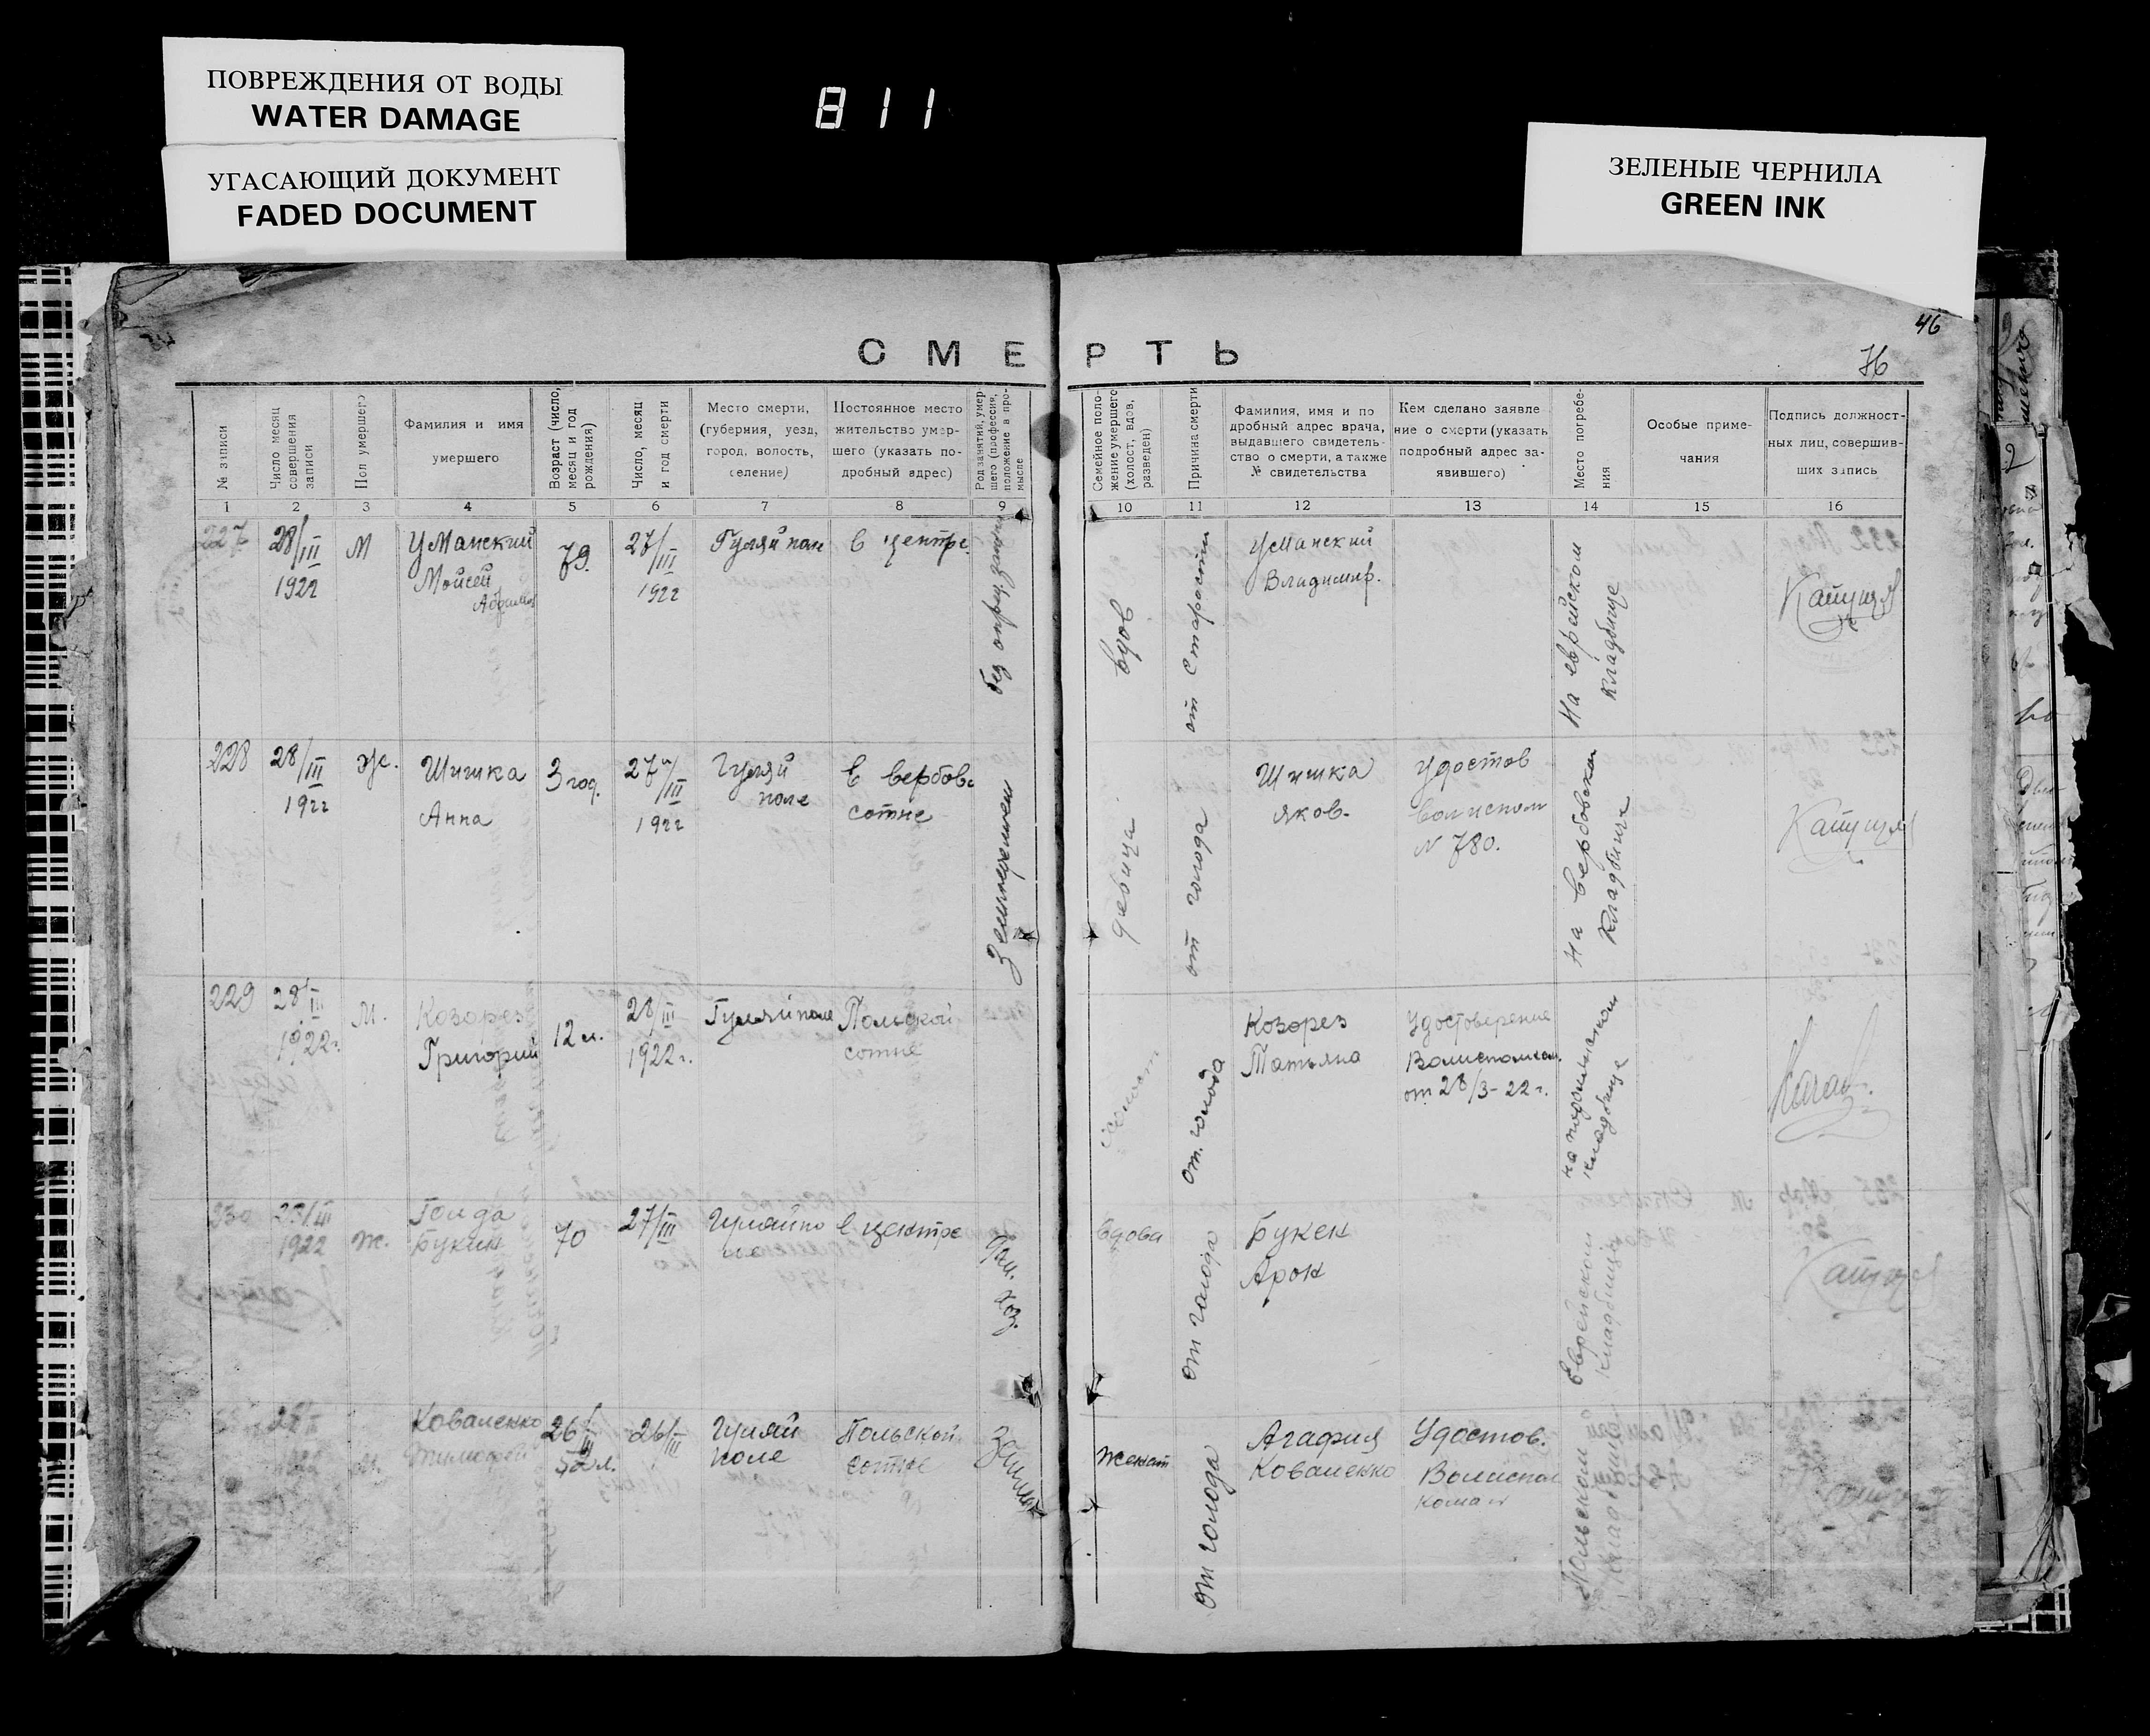 ПОВРЕЖДЕНИЯ ОТ ВОДЫ
WATER DAMAGE
УГАСАЮЩИЙ ДОКУМЕНТ
FADED DOCUMENT
811
ЗЕЛЕНЫЕ ЧЕРНИЛА
GREEN INK
46
СМЕРТЬ
№ записи
Число месяц
совершения
записи
Пол умершего
Фамилия и имя
умершего
Возраст (число,
месяц и год
рождения)
Число, месяц
и год смерти
Место смерти,
(губерния, уезд,
город, волость,
селение)
Постоянное место
жительство умер-
шего (указать по-
дробный адрес)
Род занятий, умер-
шего (профессия,
положение в про-
мысле
Семейное поло-
жение умершего
(холост, вдов,
разведен)
Причина смерти
Фамилия, имя и по
дробный адрес врача,
выдавшего свидетель-
ство о смерти, а также
№ свидетельства
Кем сделано заявле
ние о смерти (указать
подробный адрес за-
явившего)
Место погребе-
ния
Особые приме-
чания
Подпись должност-
ных лиц, совершив-
ших запись
1 2 3 4 5 6 7 8 9 10 11 12 13 14 15 16
227
28/III
1922
М
Уманский
Мойсей
79.
27/III
1922
Гуляйполе
в центре
без опред. занят
вдов
от старости
Уманский
Владимир.
На еврйском
кладбище
228
28/III
1922
Ж.
Шишка
Анна
3 год.
27/III
1922
Гуляй
поле
в вербовс
сотне
девица
от голода
Шишка
Яков.
Удостов
Волисполк
N 780.
На Вербовском
кладбище
229
28/III
1922г.
М.
Козорез
Григорий
12 л.
28/III
1922г.
Гуляйполе
Польской
сотне
холост
от. голода
Козорез
Татьяна
Удостоверение
Волисполком.
от 28/3-22 г.
кладбище
230
1922
Ж.
Голда
Букин
70
27/III
Гуляйпо
ле
в центре
Дом.
хоз.
Вдова
от голода
Букен
Арон
Еврейском
кладбище
Коваленко
Тимофей
26/III
Гуляй
поле
Польской
сотне
женат
от голода
Агафия
Коваленко
Удостов.
Волиспол
кома
Польском
кладбище